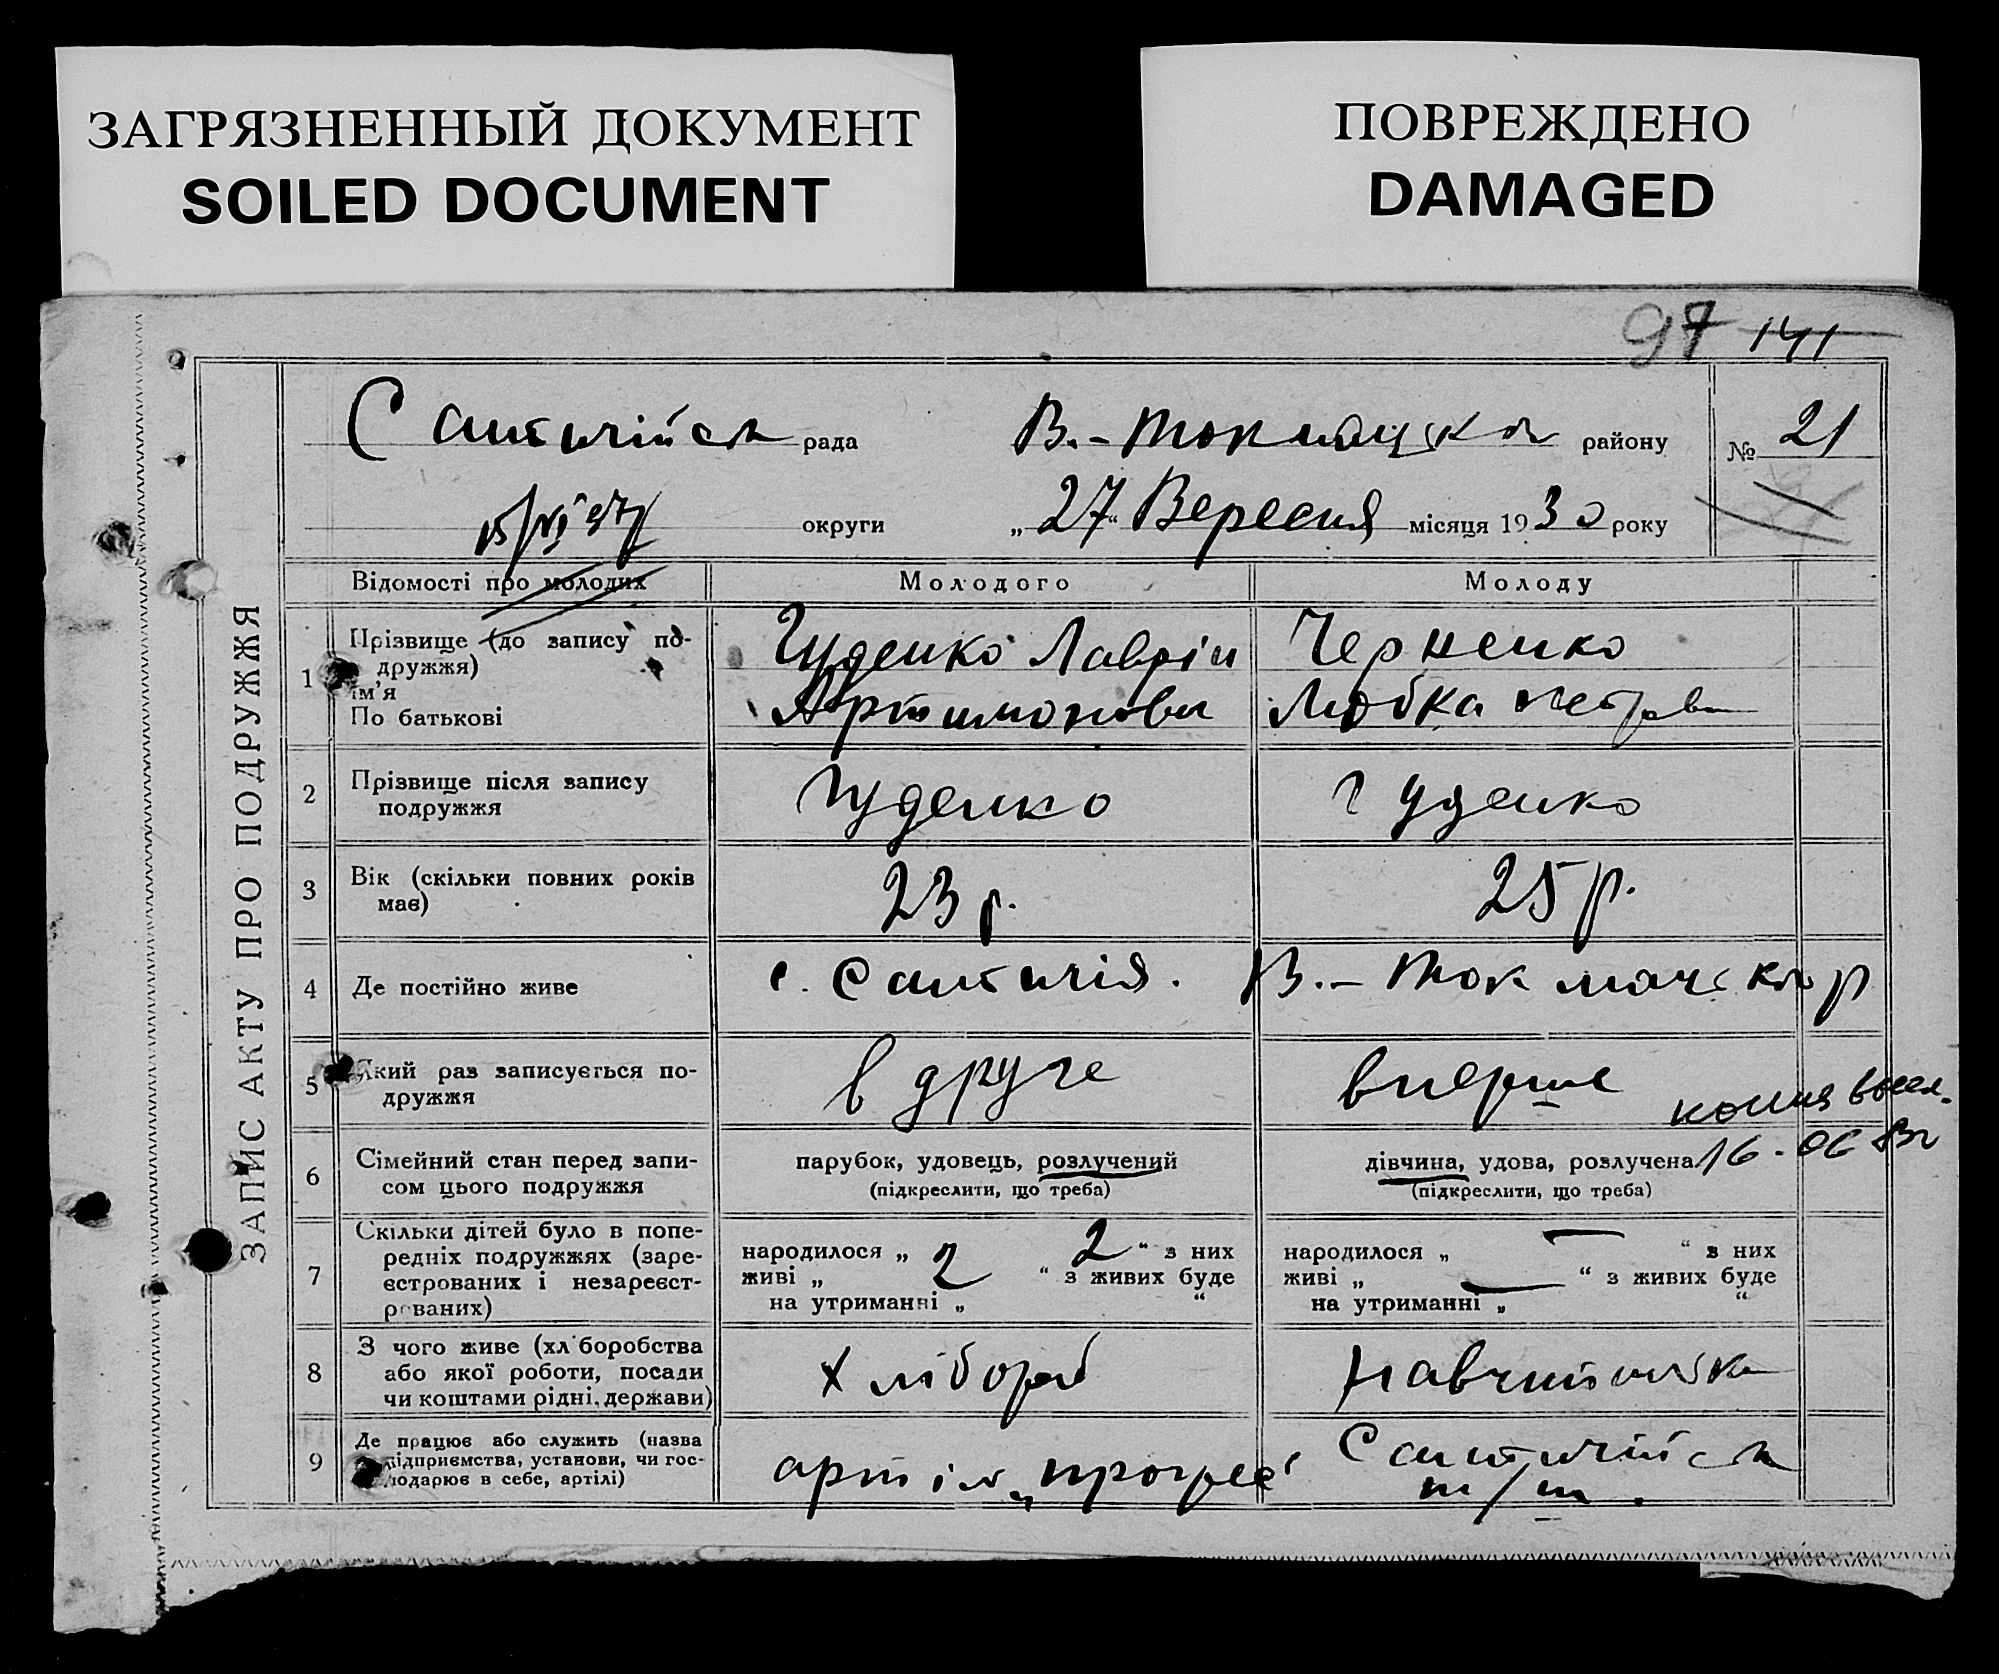 ЗАГРЯЗНЕННЫЙ ДОКУМЕНТ
SOILED DOCUMENT
ПОВРЕЖДЕНО
DAMAGED
97 141
ЗАПИС АКТУ ПРО ПОДРУЖЖЯ
рада В.-Токмацьк района району № 21
округи „27“ Вересня місяця 1930 року
Відомості про молодих Молодого Молоду
1 Прізвище (до запису по-
дружжя)
Ім’я
По батькові
Гуденко Лаврін
Артимонови
Черненко
Любка Петров
2 Прізвище після запису
подружжя
Гуденко Гуденко
3 Вік (скільки повних років
має)
23 р. 25 р.
4 Де постійно живе
с. В.-Токмач р
5 Який раз записується по-
дружжя
вдруге вперше
копия
16-06 83г
6 Сімейний стан перед запи-
сом цього подружжя
парубок, удовець, розлучений
(підкреслити, що треба)
дівчина, удова, розлучена
(підкреслити, що треба)
7 Скільки дітей було в попе-
редніх подружжях (заре-
єстрованих і незареєст-
рованих)
народилося „ 2 “ з них
живі „ 2 “ з живих буде
на утриманні „ “
народилося „ — “ з них
живі „ — “ з живих буде
на утриманні „ “
8 З чого живе (хліборобства
або якої роботи, посади
чи коштами рідні, держави)
хлібороб
навчителька
9 Де працює або служить (назва
підприємства, установи, чи гос-
подарює в себе, артілі)
артіль „прогрес